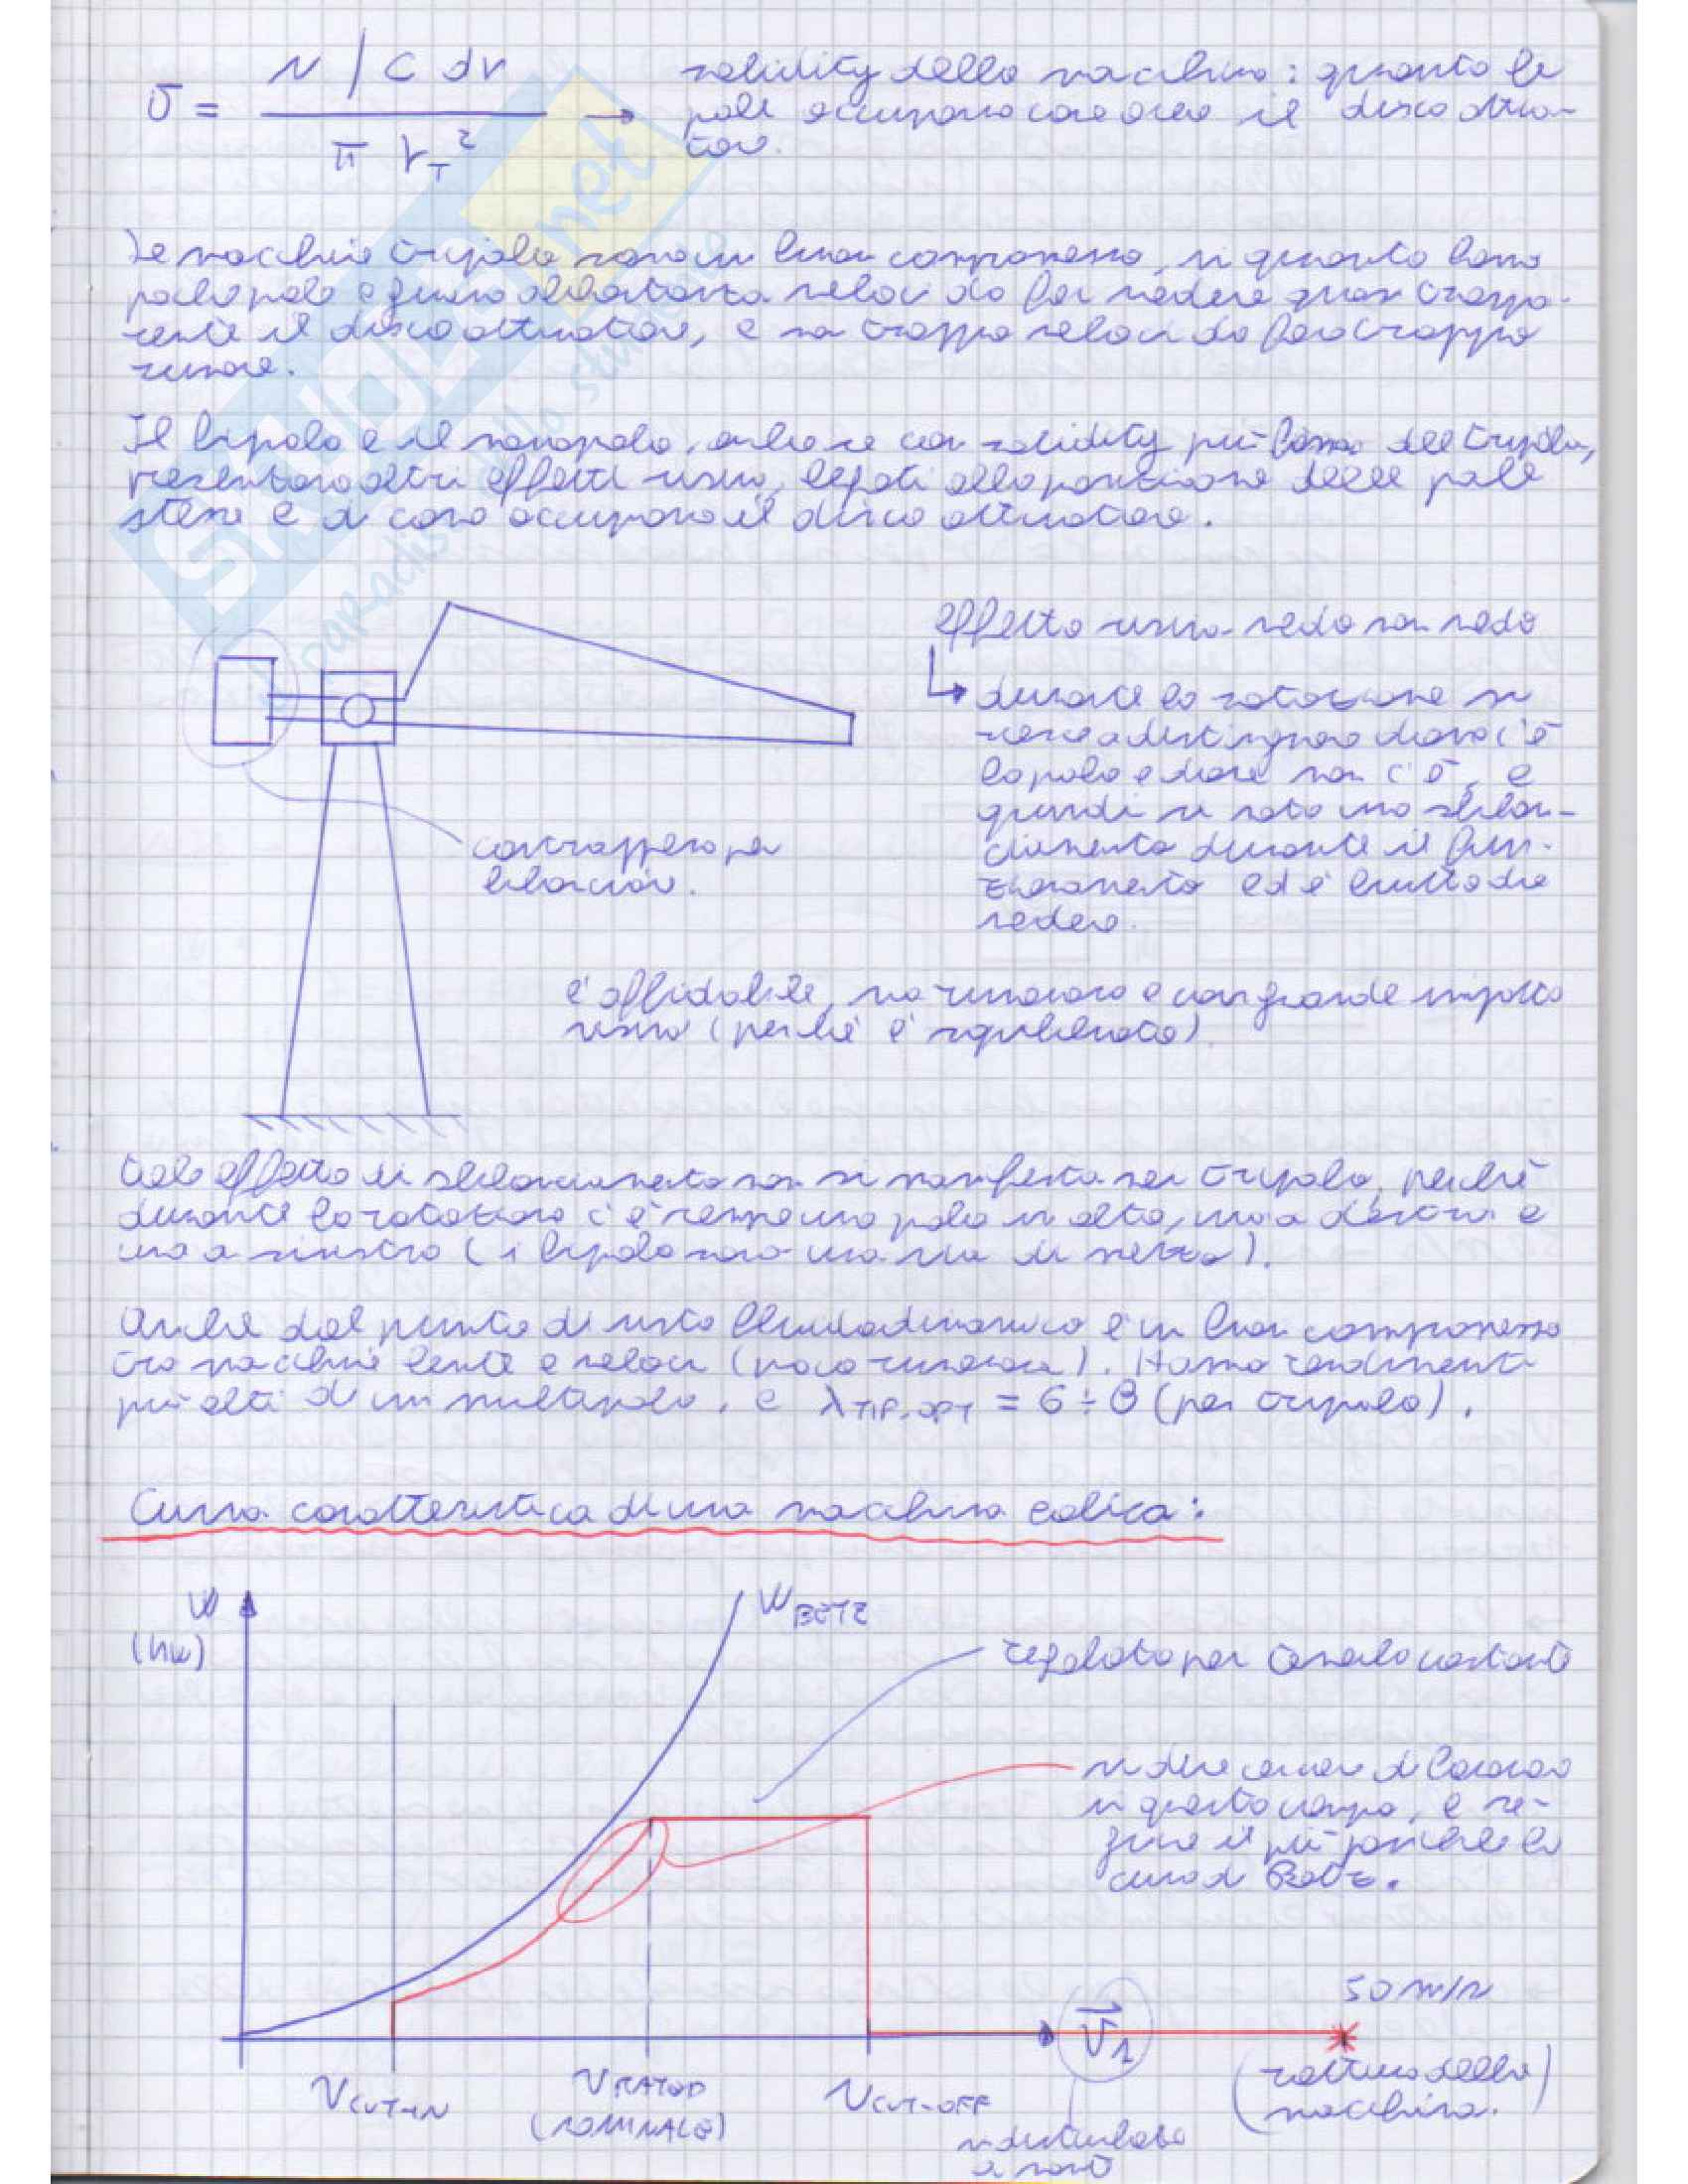 σ = N ∫ C dr / π r_T² → solidity della macchina: quanto le
pale occupano come area il disco attua-
tore.
Le macchine tripala sono un buon compromesso, in quanto hanno
poche pale e girano abbastanza veloci da far vedere quasi traspa-
rente il disco attuatore, e non troppo veloci da fare troppo
rumore.
Il bipala e il monopala, anche se con solidity più bassa del tripala,
presentano altri effetti visivi, legati alla posizione delle pale
stesse e di come occupano il disco attuatore.
effetto visivo vedo non vedo
↳ durante la rotazione si
riesce a distinguere dove c'è
la pala e dove non c'è, e
quindi si nota uno sbilan-
ciamento durante il fun-
zionamento ed è brutto da
vedere.
contrappeso per
bilanciare.
è affidabile, ma rumorosa e con grande impatto
visivo (perché è squilibrata)
Tale effetto di sbilanciamento non si manifesta nei tripala, perché
durante la rotazione c'è sempre una pala in alto, una a destra e
una a sinistra (i bipala sono una via di mezzo).
Anche dal punto di vista fluidodinamico è un buon compromesso
tra macchine lente e veloci (poco rumorosa). Hanno rendimenti
più alti di un multipala, e λTIP,OPT = 6÷8 (per tripala).
Curva caratteristica di una macchina eolica:
W
(kW)
W BETZ
regolata per tenerla costante
si deve cercare di lavorare
in questo campo, e se-
guire il più possibile la
curva di Betz.
50 m/s
V CUT-IN
V RATED
(NOMINALE)
V CUT-OFF
V1
(rottura della
macchina.)
indisturbata
a monte
SKUOLA.net